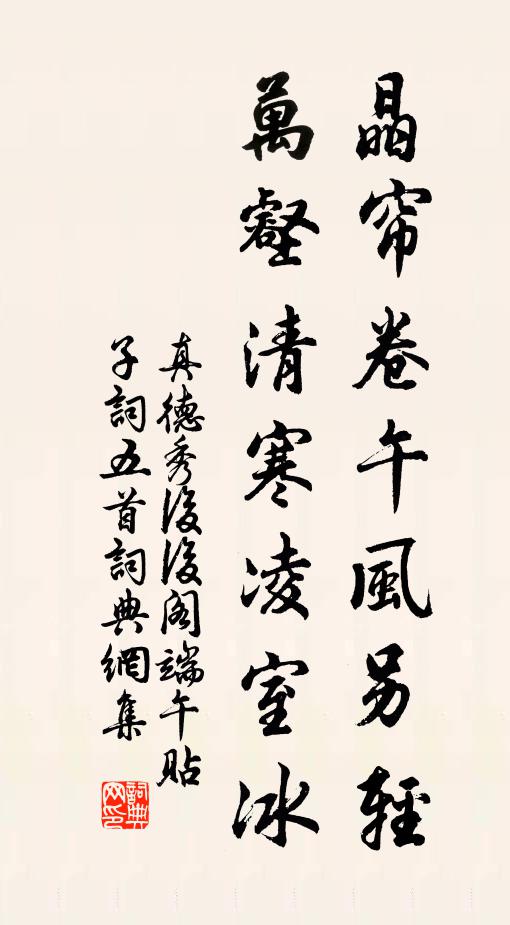 晶帘卷午風另輕
萬壑清寒凌室冰
真德秀後後閣端午貼
子詞五首詞典網集
詞典网印